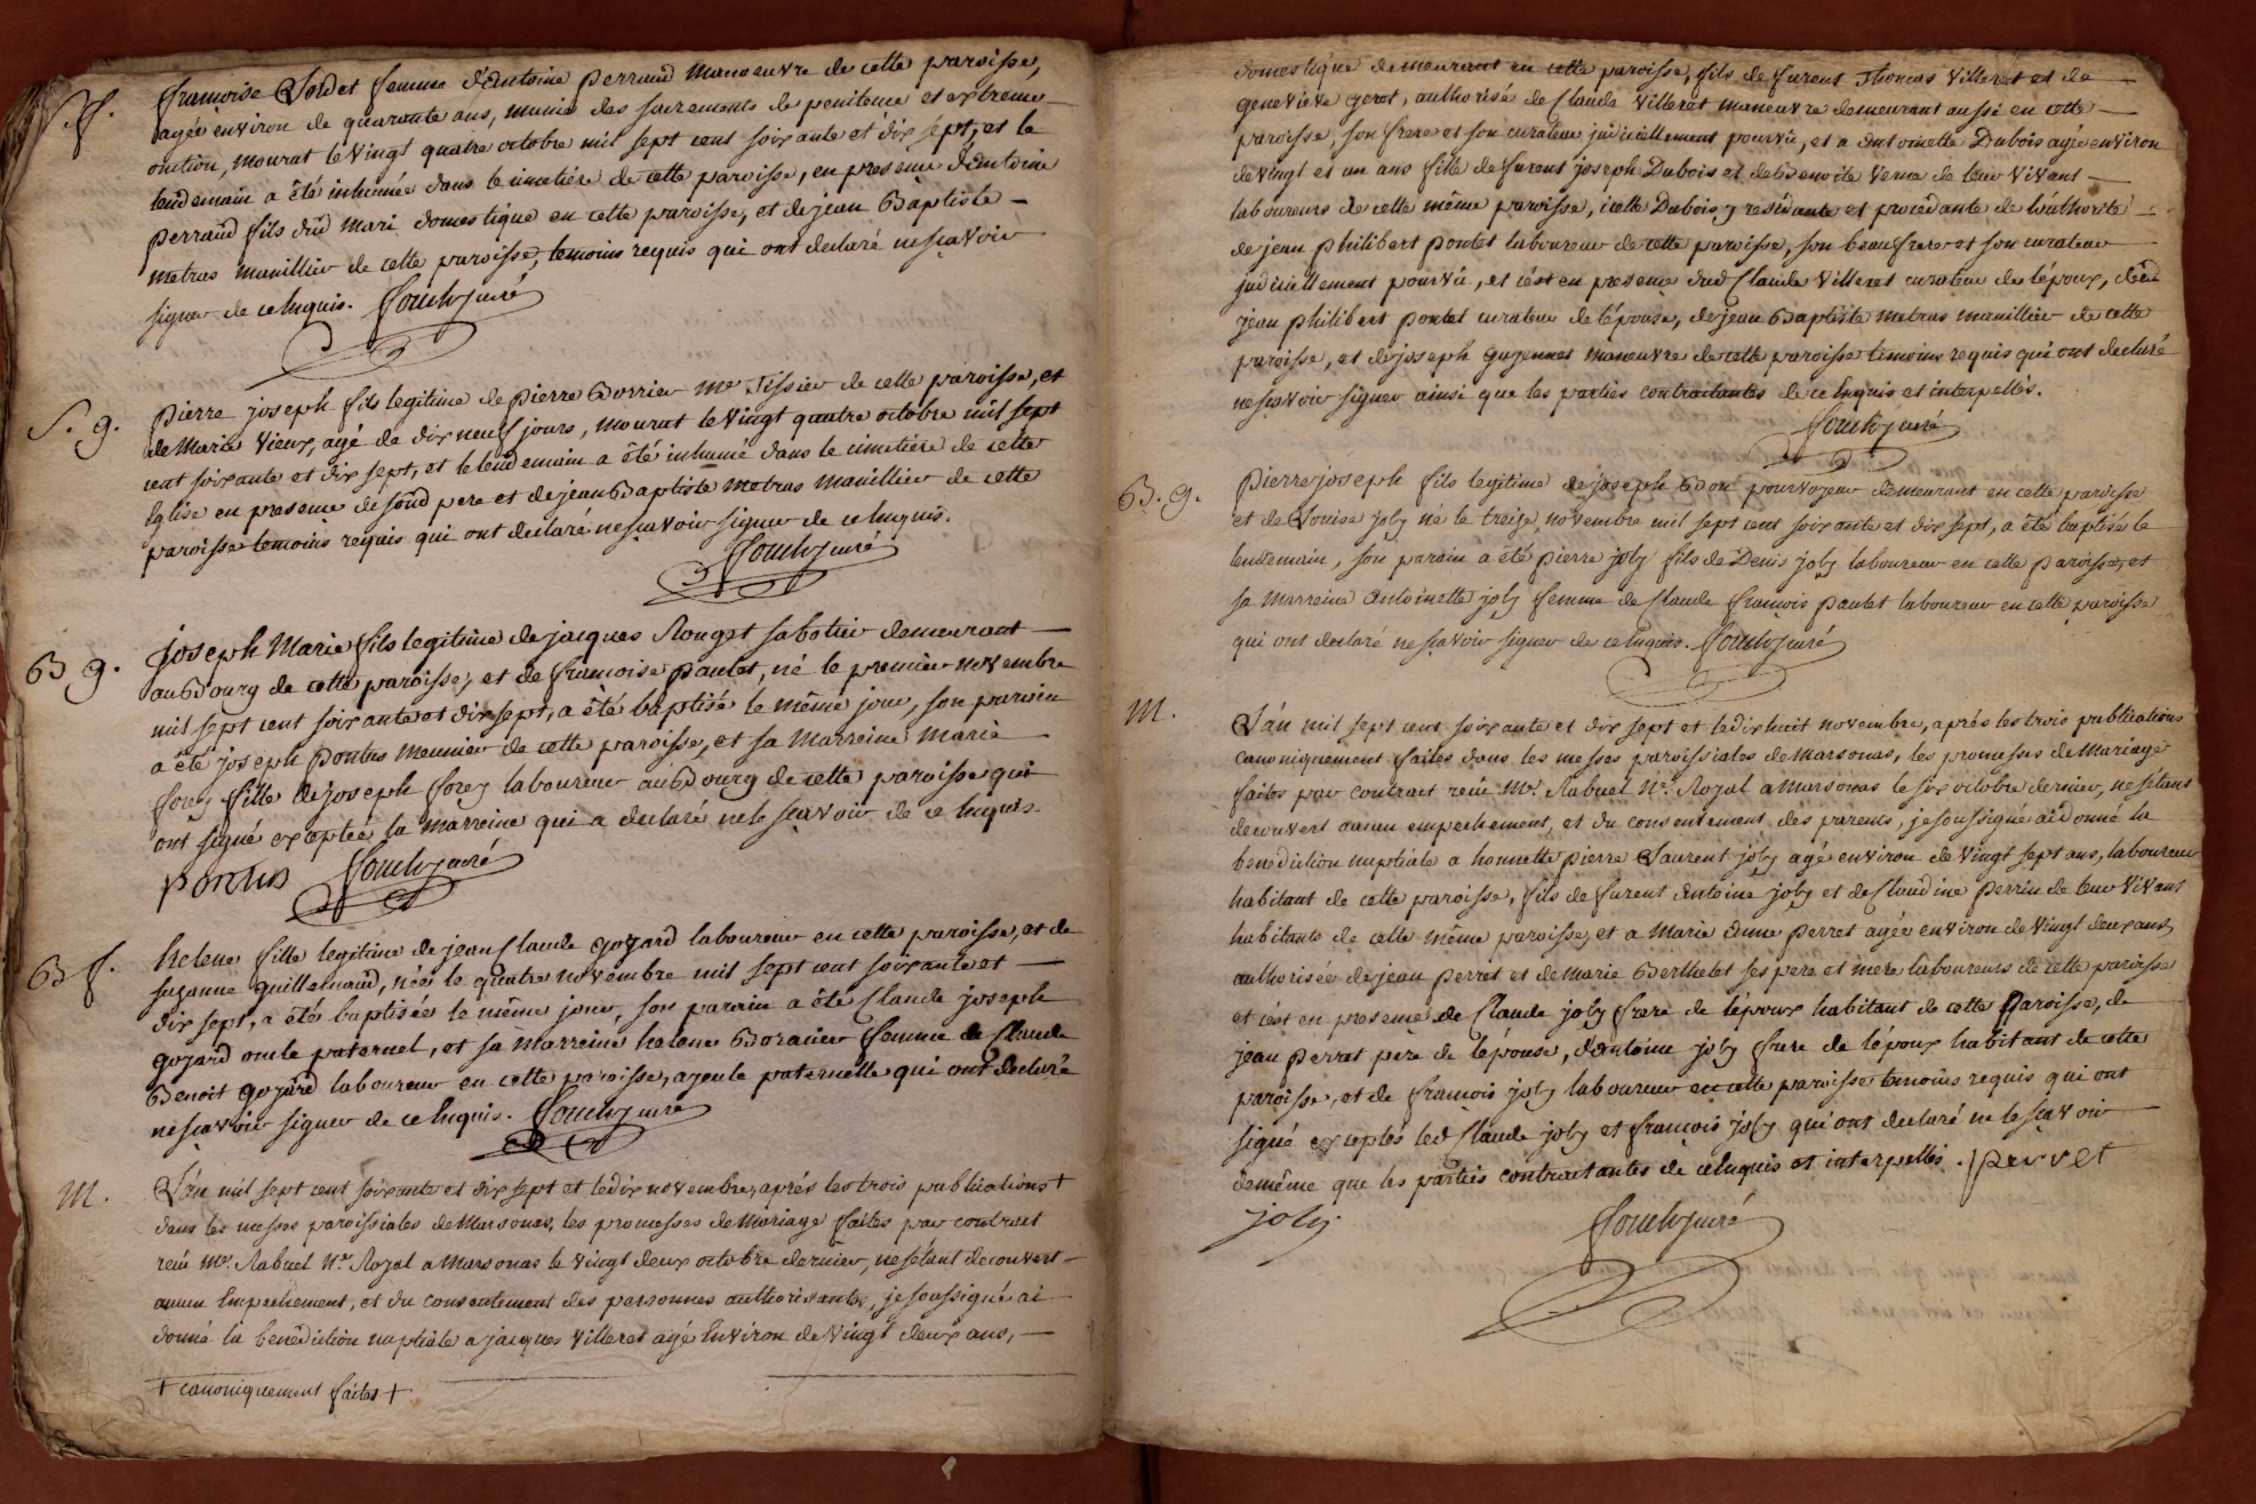 S. f.
françoise Soldet femme d'Antoine Perraud manoeuvre de cette paroisse,
agée environ de quarante ans, munie des sacrements de penitence et extreme
onction, mourut le vingt quatre octobre mil sept cent soixante et dix sept, et le
lendemain a été inhumée dans le cimetiére de cette paroisse, en presence d'Antoine
perraud fils dud mari domestique en cette paroisse, et de jean Baptiste
metras manillier de cette paroisse, temoins requis qui ont declaré ne scavoir
signer de ce Enquis. curé
S. g.
Pierre joseph fils legitime de pierre Borrier Me Tissier de cette paroisse, et
de Marie vieux, agé de dix neuf jours, mourut le vingt quatre octobre mil sept
cent soixante et dix sept, et le lendemain a été inhumé dans le cimetiere de cette
Eglise en presence de sond pere et de jean Baptiste metras manillier de cette
paroisse temoins requis qui ont declaré ne scavoir signer de ce Enquis.
curé
B g.
joseph Marie fils legitime de jacques Rouget sabotier demeurant
au Bourg de cette paroisse, et de françoise pautet, né le premier novembre
mil sept cent soixante et dix sept, a été baptisé le même jour, son parain
a été joseph pontus meunier de cette paroisse, et sa Marreine Marie
forey fille de joseph forey laboureur au Bourg de cette paroisse qui
ont signé exceptée la marreine qui a declaré ne le scavoir de ce Enquis.
pontus curé
B f.
helene fille legitime de jean Claude goyard laboureur en cette paroisse, et de
suzanne guillemaud, née le quatre novembre mil sept cent soixante et
dix sept, a été baptisée le même jour, son parrain a été Claude joseph
goyard oncle paternel, et sa marreine helene Boraner femme de Claude
Benoit goyard laboureur en cette paroisse, ayeule paternelle qui ont declaré
ne scavoir signer de ce Enquis. curé
M.
L'an mil sept cent soixante et dix sept et le dix novembre, aprés les trois publications +
dans les messes paroissiales de Marsonas, les promesses de Mariage faites par contract
reçu Me. Rabuel Nre. Royal a Marsonas le vingt deux octobre dernier, ne s'étant decouvert
aucun Empechement, et du consentement des personnes authorisantes, je soussigné ai
donné la benediction nuptiale a jacques villeret agé Environ de vingt deux ans,
+ canoniquement faites +
domestique demeurant en cette paroisse, fils de furent Thomas villeret et de
genevieve geret, authorisé de Claude villeret maneuvre demeurant aussi en cette
paroisse, son frere et son curateur judiciellement pourvu, et a antoinette Dubois agée environ
de vingt et un ans fille de furent joseph Dubois et de Benoite verne de leur vivant
laboureurs de cette même paroisse, icelle Dubois y residante et procedante de l'authorité
de jean philibert pontet laboureur de cette paroisse, son beaufrere et son curateur
judiciellement pourvû, et c'est en presence dud Claude villeret curateur de l'époux, dud
jean philibert pontet curateur de l'épouse, de jean Baptiste metras manillier de cette
paroisse, et de joseph guyennet maneuvre de cette paroisse temoins requis qui ont declaré
ne scavoir signer ainsi que les parties contractantes de ce Enquis et interpellés.
curé
B. g.
Pierre joseph fils legitime de joseph Bon pourvoyeur demeurant en cette paroisse
et de Louise joly né le treize novembre mil sept cent soixante et dix sept, a été baptisé le
lendemain, son parain a été pierre joly fils de Denis joly laboureur en cette paroisse, et
sa marreine antoinette joly femme de Claude françois pautet laboureur en cette paroisse
qui ont declaré ne scavoir signer de ce Enquis. curé
M.
L'an mil sept cent soixante et dix sept et le dix huit novembre, aprés les trois publications
canoniquement faites dans les messes paroissiales de Marsonas, les promesses de Mariage
faites par contract reçu Me. Rabuel Nre. Royal a Marsonas le six octobre dernier, ne s'étant
decouvert aucun empechement, et du consentement des parents, je soussigné ai donné la
benediction nuptiale a honnette pierre Laurent joly agé environ de vingt sept ans, laboureur
habitant de cette paroisse, fils de furent antoine joly et de Claudine perrin de leur vivant
habitants de cette même paroisse, et a Marie anne perret agée environ de vingt deux ans,
authorisée de jean perret et de Marie Berthelet ses pere et mere laboureurs de cette paroisse
et c'est en presence de Claude joly frere de l'époux habitant de cette paroisse, de
jean perret pere de l'épouse, d'antoine joly frere de l'époux habitant de cette
paroisse, et de françois joly laboureur en cette paroisse temoins requis qui ont
signé exceptés led Claude joly et françois joly qui ont declaré ne le scavoir
de même que les parties contractantes de ce Enquis et interpellés. perret
joly curé